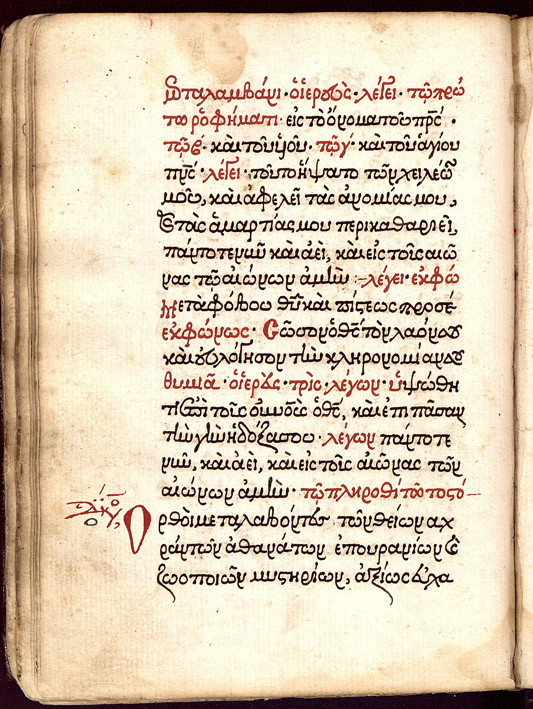 μεταλαμβάνει · ὁ ἱερεὺς · λέγει · τῷ πρώ
τω ροφήματι · εἰς τὸ ὄνομα τοῦ πρς ·
τῷ β · καὶ τοῦ υἱοῦ · τῷ γ · καὶ τοῦ ἁγίου
πνς · λέγει · τοῦτο ἥψατο τῶν χειλέω
μου, καὶ ἀφελεῖ τὰς ἀνομίας μου,
καὶ τὰς ἁμαρτίας μου περικαθαριεῖ,
πάντοτε νῦν καὶ ἀεὶ, καὶ εἰς τοὺς αἰῶ
νας τῶν αἰώνων ἀμὴν :– λέγει · ἐκφώ
Μετὰ φόβου θῦ καὶ πίστεως προσέ
ἐκφώνως · Σῶσον ὁ θς τὸν λαόν σου
καὶ εὐλόγησον τὴν κληρονομίαν σου
θυμιᾶ · ὁ ἱερεὺς · τρὶς · λέγων · ὑψώθη
τι ἐπὶ τοὺς οὐνοὺς ὁ θς, καὶ ἐπὶ πᾶσαν
τὴν γῆν ἡ δόξα σου · λέγων πάντοτε
νῦν, καὶ ἀεὶ, καὶ εἰς τοὺς αἰῶνας τῶν
αἰώνων ἀμὴν · τὸ πληροθήτω τὸ στό–
Ορθοὶ μεταλαβόντες τῶν θείων ἀχ
ράντων ἀθανάτων ἐπουρανίων καὶ
ζωοποιῶν μυστηρίων, ἀξίως εὐχα